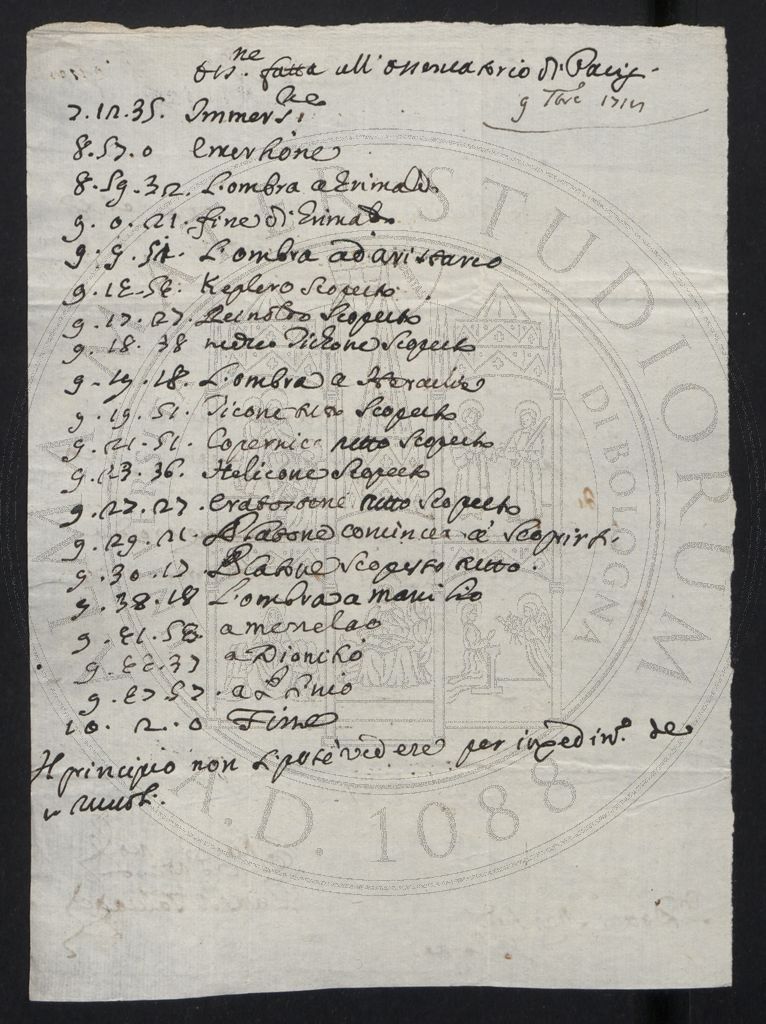 Oss.ne fatta all'osservatorio di Parigi
9 7bre 1717
7.12.35. Immers.ne
8.57.0 Emersione
8.59.32. L'ombra a Grimaldi
9.0.21. fine di Grimaldi
9.9.54. L'ombra ad aristarco
9.12.52. Keplero scoperto
9.17.27. Reinoldo scoperto
9.18.38 mezzo Ticone scoperto
9.19.18. L'ombra a Heraclide
9.19.51. Ticone tutto scoperto
9.21.51. Copernico tutto scoperto
9.23.36. Helicone scoperto
9.27.27. Eratostene tutto scoperto
9.29.21. Platone comincia a scoprirsi.
9.30.17. Platone scoperto tutto.
9.38.18 L'ombra a manilio
9.41.58 a menelao
9.44.37 a Dionisio
9.47.57. a Plinio
10.2.0 Fine
Il principio non si poté vedere per impedim.to de
nuvoli.
ALMA MATER STUDIORUM
DI BOLOGNA
A.D. 1088